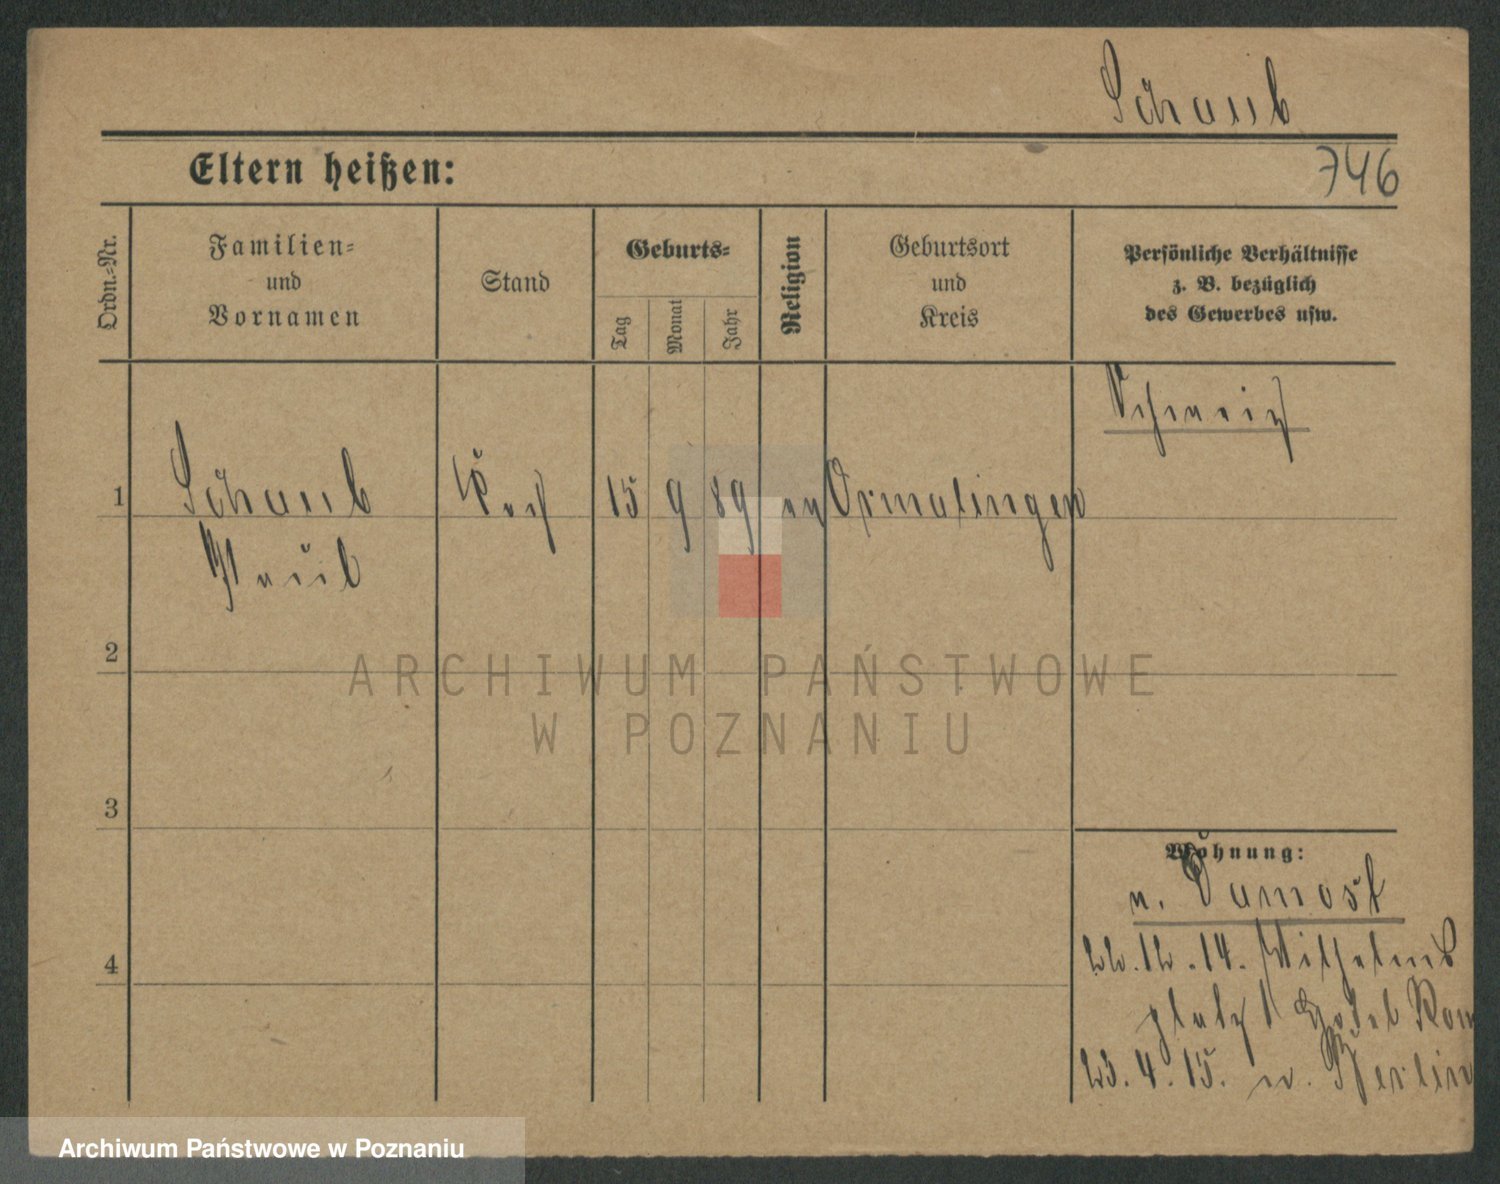 Schaub
Eltern heißen:
746
Ordn.-Nr.
Familien-
und
Vornamen
Stand
Geburts-
Tag
Monat
Jahr
Religion
Geburtsort
und
Kreis
Persönliche Verhältnisse
z. B. bezüglich
des Gewerbes usw.
Schweiz
1
Schaub
Paul
Koch
15
9
89
ev
Ormalingen
2
3
4
Wohnung:
v.
22.12.14. Wilhelms
platz 1 Hotel Rom
23.4.15. n. Berlin
ARCHIWUM PAŃSTWOWE
W POZNANIU
Archiwum Państwowe w Poznaniu